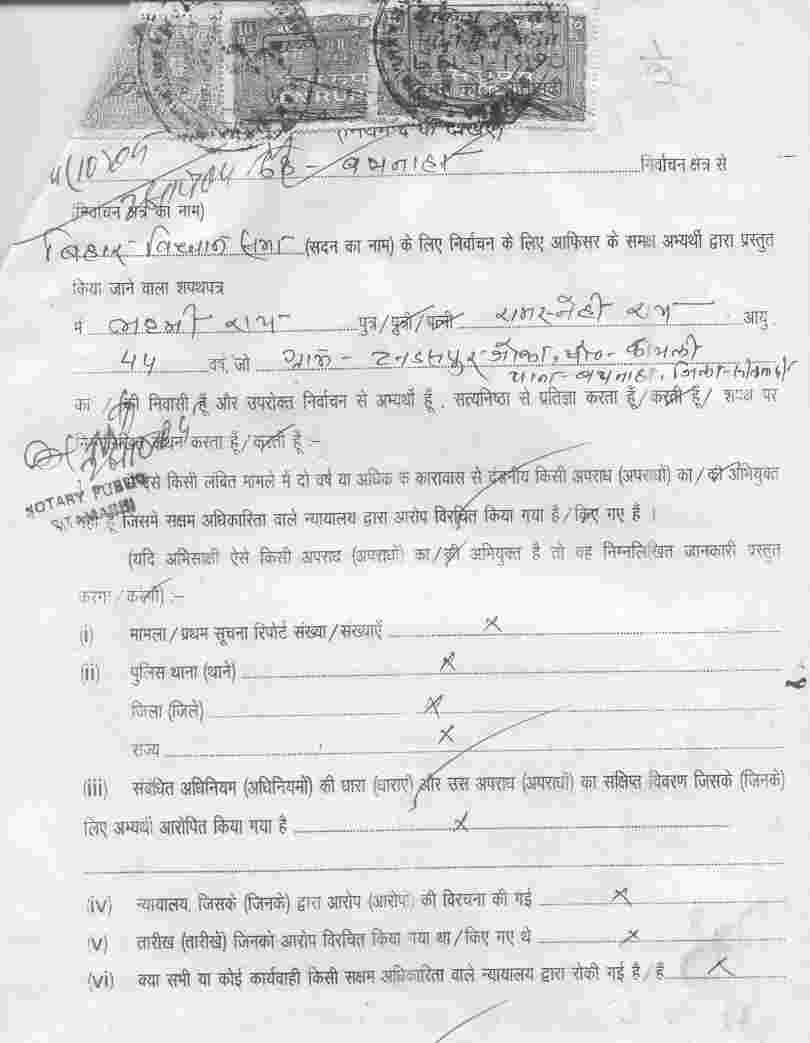 4/10/05
68 - बथनाहा निर्वाचन क्षेत्र से
(निर्वाचन क्षेत्र का नाम)
बिहार विधान सभा (सदन का नाम) के लिए निर्वाचन के लिए आफिसर के समक्ष अभ्यर्थी द्वारा प्रस्तुत
किया जाने वाला शपथपत्र
मैं राय पुत्र/पुत्री/पत्नी रामस्नेही राय आयु
44 वर्ष जो ग्राम -
थाना - बथनाहा, जिला -
का/की निवासी हूँ और उपरोक्त निर्वाचन से अभ्यर्थी हूँ, सत्यनिष्ठा से प्रतिज्ञा करता हूँ/करती हूँ/ शपथ पर
करता हूँ/करती हूँ :-
NOTARY PUBLIC
SITAMARHI
ऐसे किसी लंबित मामले में दो वर्ष या अधिक क कारावास से दंडनीय किसी अपराध (अपराधों) का/की अभियुक्त
नहीं हूँ जिसमें सक्षम अधिकारिता वाले न्यायालय द्वारा आरोप विरचित किया गया है/किए गए है ।
(यदि अभिसाक्षी ऐसे किसी अपराध (अपराधों) का/की अभियुक्त है तो वह निम्नलिखित जानकारी प्रस्तुत
करेगा/करेगी) :-
(i) मामला/प्रथम सूचना रिपोर्ट संख्या/संख्याएँ x
(ii) पुलिस थाना (थाने) x
जिला (जिले) x
राज्य x
(iii) संबंधित अधिनियम (अधिनियमों) की धारा (धाराएं) और उस अपराध (अपराधों) का संक्षिप्त विवरण जिसके (जिनके)
लिए अभ्यर्थी आरोपित किया गया है x
(iv) न्यायालय, जिसके (जिनके) द्वारा आरोप (आरोपों) की विरचना की गई x
(v) तारीख (तारीखें) जिनको आरोप विरचित किया गया था/किए गए थे x
(vi) क्या सभी या कोई कार्यवाही किसी सक्षम अधिकारिता वाले न्यायालय द्वारा रोकी गई है/हैं x